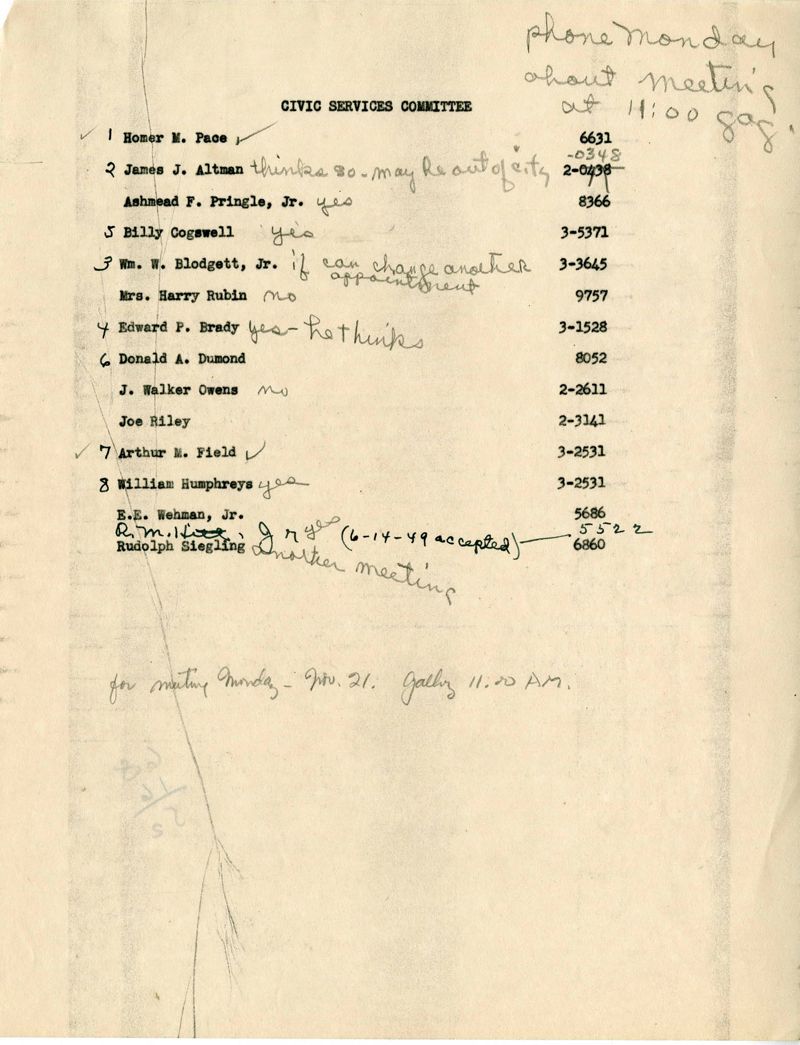 phone Monday
about meeting
at 11:00 gag.
CIVIC SERVICES COMMITTEE
✓ 1 Homer M. Pace ✓ 6631
-0348
2 James J. Altman thinks so - may be out of city 2-0438
Ashmead F. Pringle, Jr. yes 8366
5 Billy Cogswell yes 3-5371
3 Wm. W. Blodgett, Jr. if can change another 3-3645
appointment
Mrs. Harry Rubin no 9757
4 Edward P. Brady yes - he thinks 3-1528
6 Donald A. Dumond 8052
J. Walker Owens no 2-2611
Joe Riley 2-3141
✓ 7 Arthur M. Field ✓ 3-2531
8 William Humphreys yes 3-2531
E.E. Wehman, Jr. 5686
R. M. Jr yes (6-14-49 accepted) 5522
Rudolph Siegling another meeting 6860
for meeting Monday - Nov. 21. Gallery 11.00 A.M.